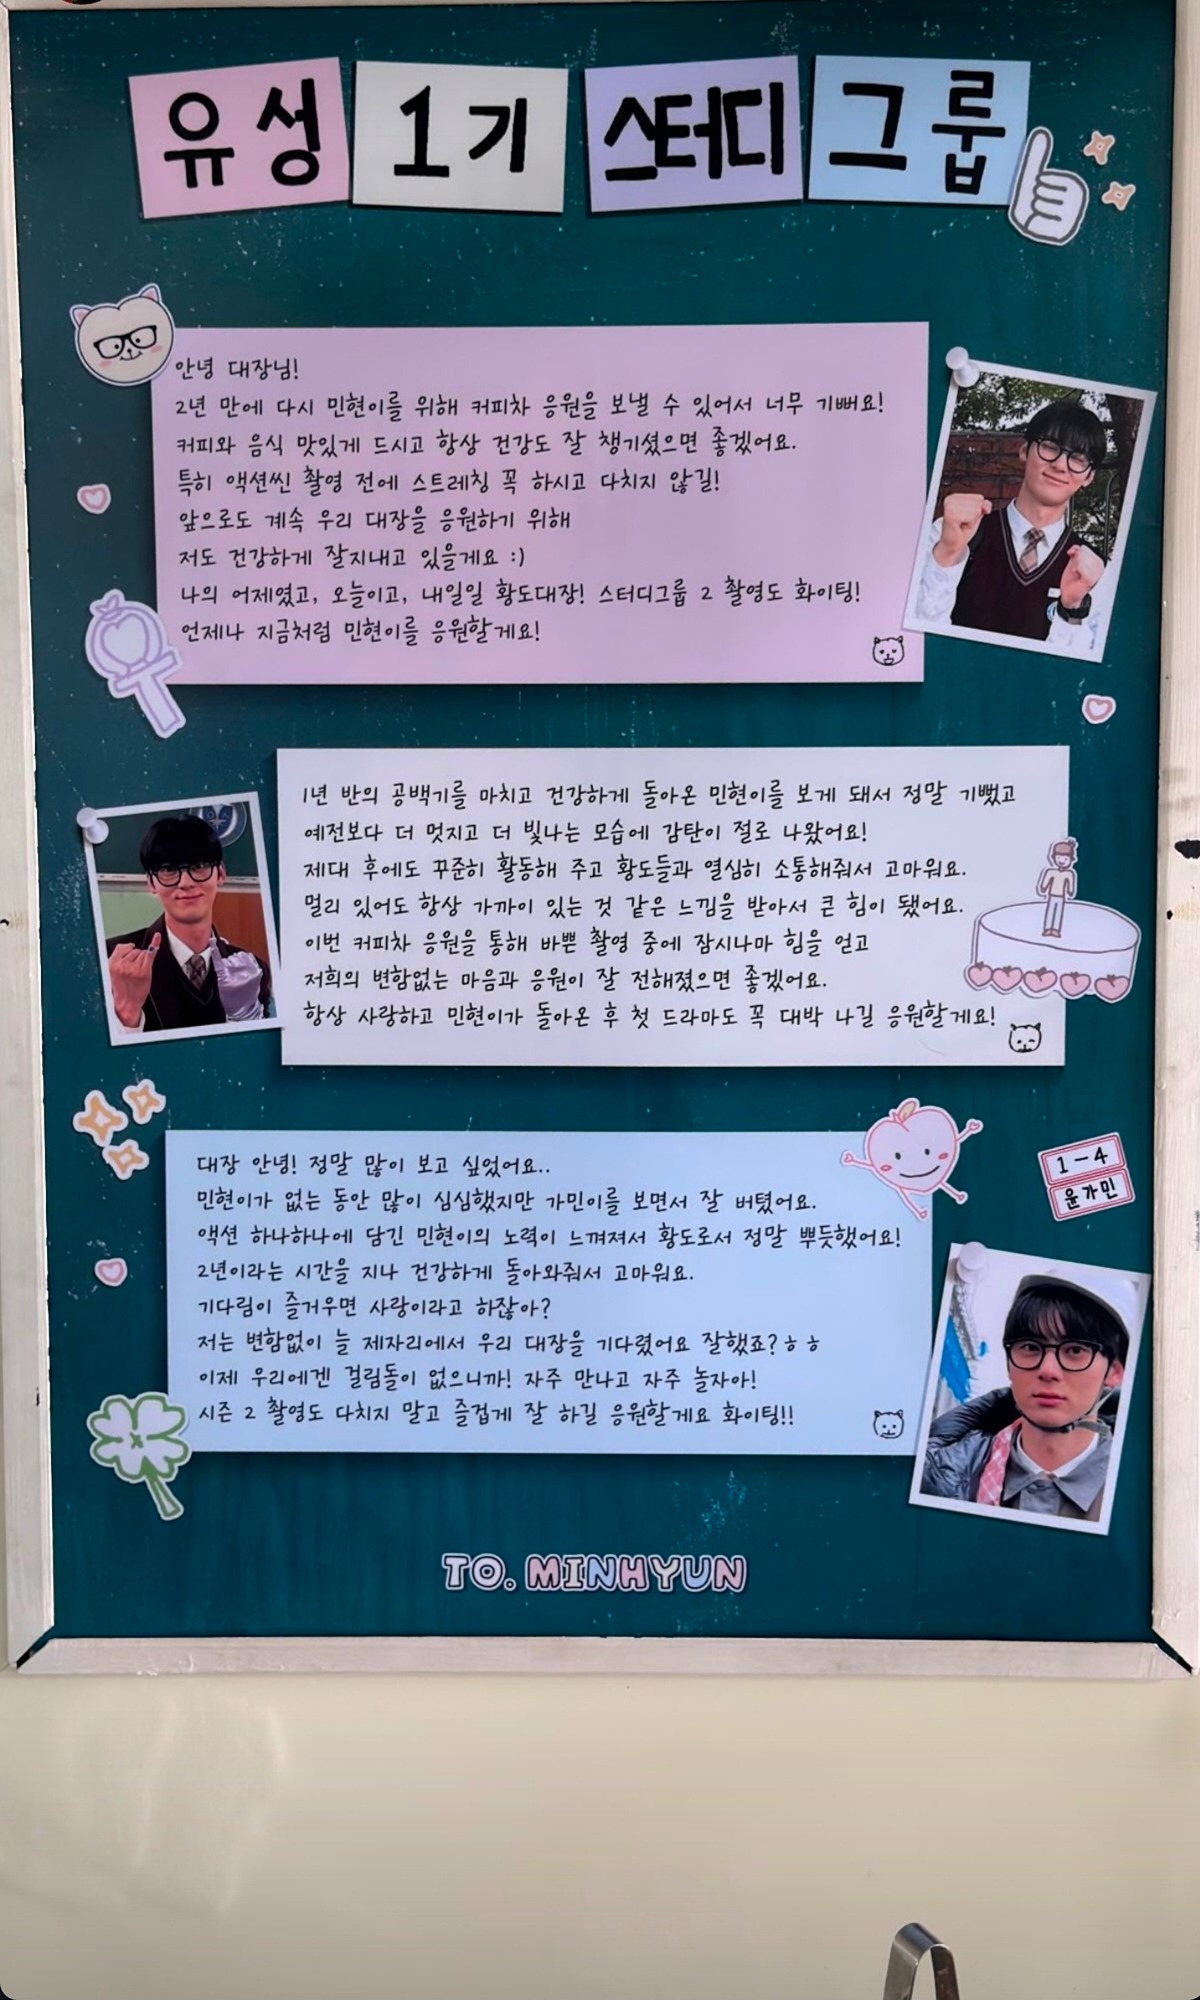 유성 1기 스터디 그룹
안녕 대장님!
2년 만에 다시 민현이를 위해 커피차 응원을 보낼 수 있어서 너무 기뻐요!
커피와 음식 맛있게 드시고 항상 건강도 잘 챙기셨으면 좋겠어요.
특히 액션씬 촬영 전에 스트레칭 꼭 하시고 다치지 않길!
앞으로도 계속 우리 대장을 응원하기 위해
저도 건강하게 잘지내고 있을게요 :)
나의 어제였고, 오늘이고, 내일일 황도대장! 스터디그룹 2 촬영도 화이팅!
언제나 지금처럼 민현이를 응원할게요!
1년 반의 공백기를 마치고 건강하게 돌아온 민현이를 보게 돼서 정말 기뻤고
예전보다 더 멋지고 더 빛나는 모습에 감탄이 절로 나왔어요!
제대 후에도 꾸준히 활동해 주고 황도들과 열심히 소통해줘서 고마워요.
멀리 있어도 항상 가까이 있는 것 같은 느낌을 받아서 큰 힘이 됐어요.
이번 커피차 응원을 통해 바쁜 촬영 중에 잠시나마 힘을 얻고
저희의 변함없는 마음과 응원이 잘 전해졌으면 좋겠어요.
항상 사랑하고 민현이가 돌아온 후 첫 드라마도 꼭 대박 나길 응원할게요!
대장 안녕! 정말 많이 보고 싶었어요..
민현이가 없는 동안 많이 심심했지만 가민이를 보면서 잘 버텼어요.
액션 하나하나에 담긴 민현이의 노력이 느껴져서 황도로서 정말 뿌듯했어요!
2년이라는 시간을 지나 건강하게 돌아와줘서 고마워요.
기다림이 즐거우면 사랑이라고 하잖아?
저는 변함없이 늘 제자리에서 우리 대장을 기다렸어요 잘했죠? ㅎㅎ
이제 우리에겐 걸림돌이 없으니까! 자주 만나고 자주 놀자아!
시즌 2 촬영도 다치지 말고 즐겁게 잘 하길 응원할게요 화이팅!!
1-4
윤가민
TO. MINHYUN